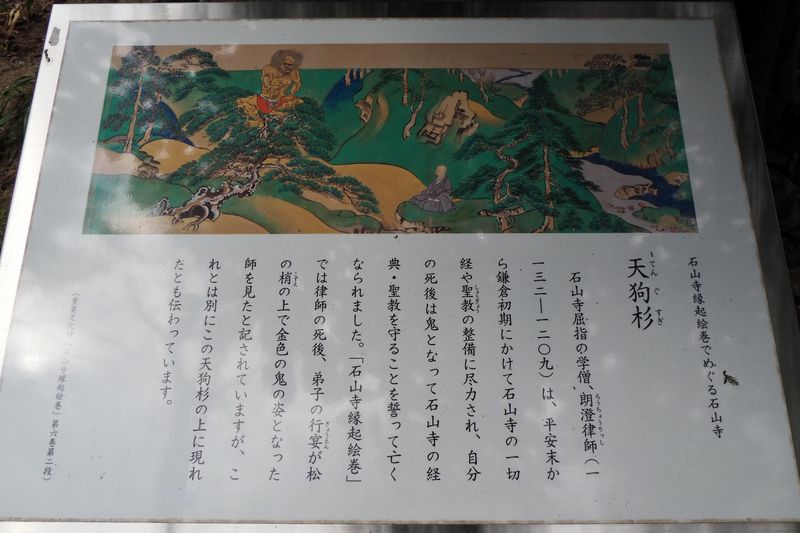 石山寺縁起絵巻でめぐる石山寺
天狗杉
てんぐすぎ
石山寺屈指の学僧、朗澄律師(一
ろうちょうりっし
一三二―一二〇九)は、平安末か
ら鎌倉初期にかけて石山寺の一切
経や聖教の整備に尽力され、自分
しょうぎょう
の死後は鬼となって石山寺の経
典・聖教を守ることを誓って亡く
なられました。「石山寺縁起絵巻」
では律師の死後、弟子の行宴が松
ぎょうえん
の梢の上で金色の鬼の姿となった
こずえ
師を見たと記されていますが、こ
れとは別にこの天狗杉の上に現れ
たとも伝わっています。
(重要文化財「石山寺縁起絵巻」第六巻第二段)